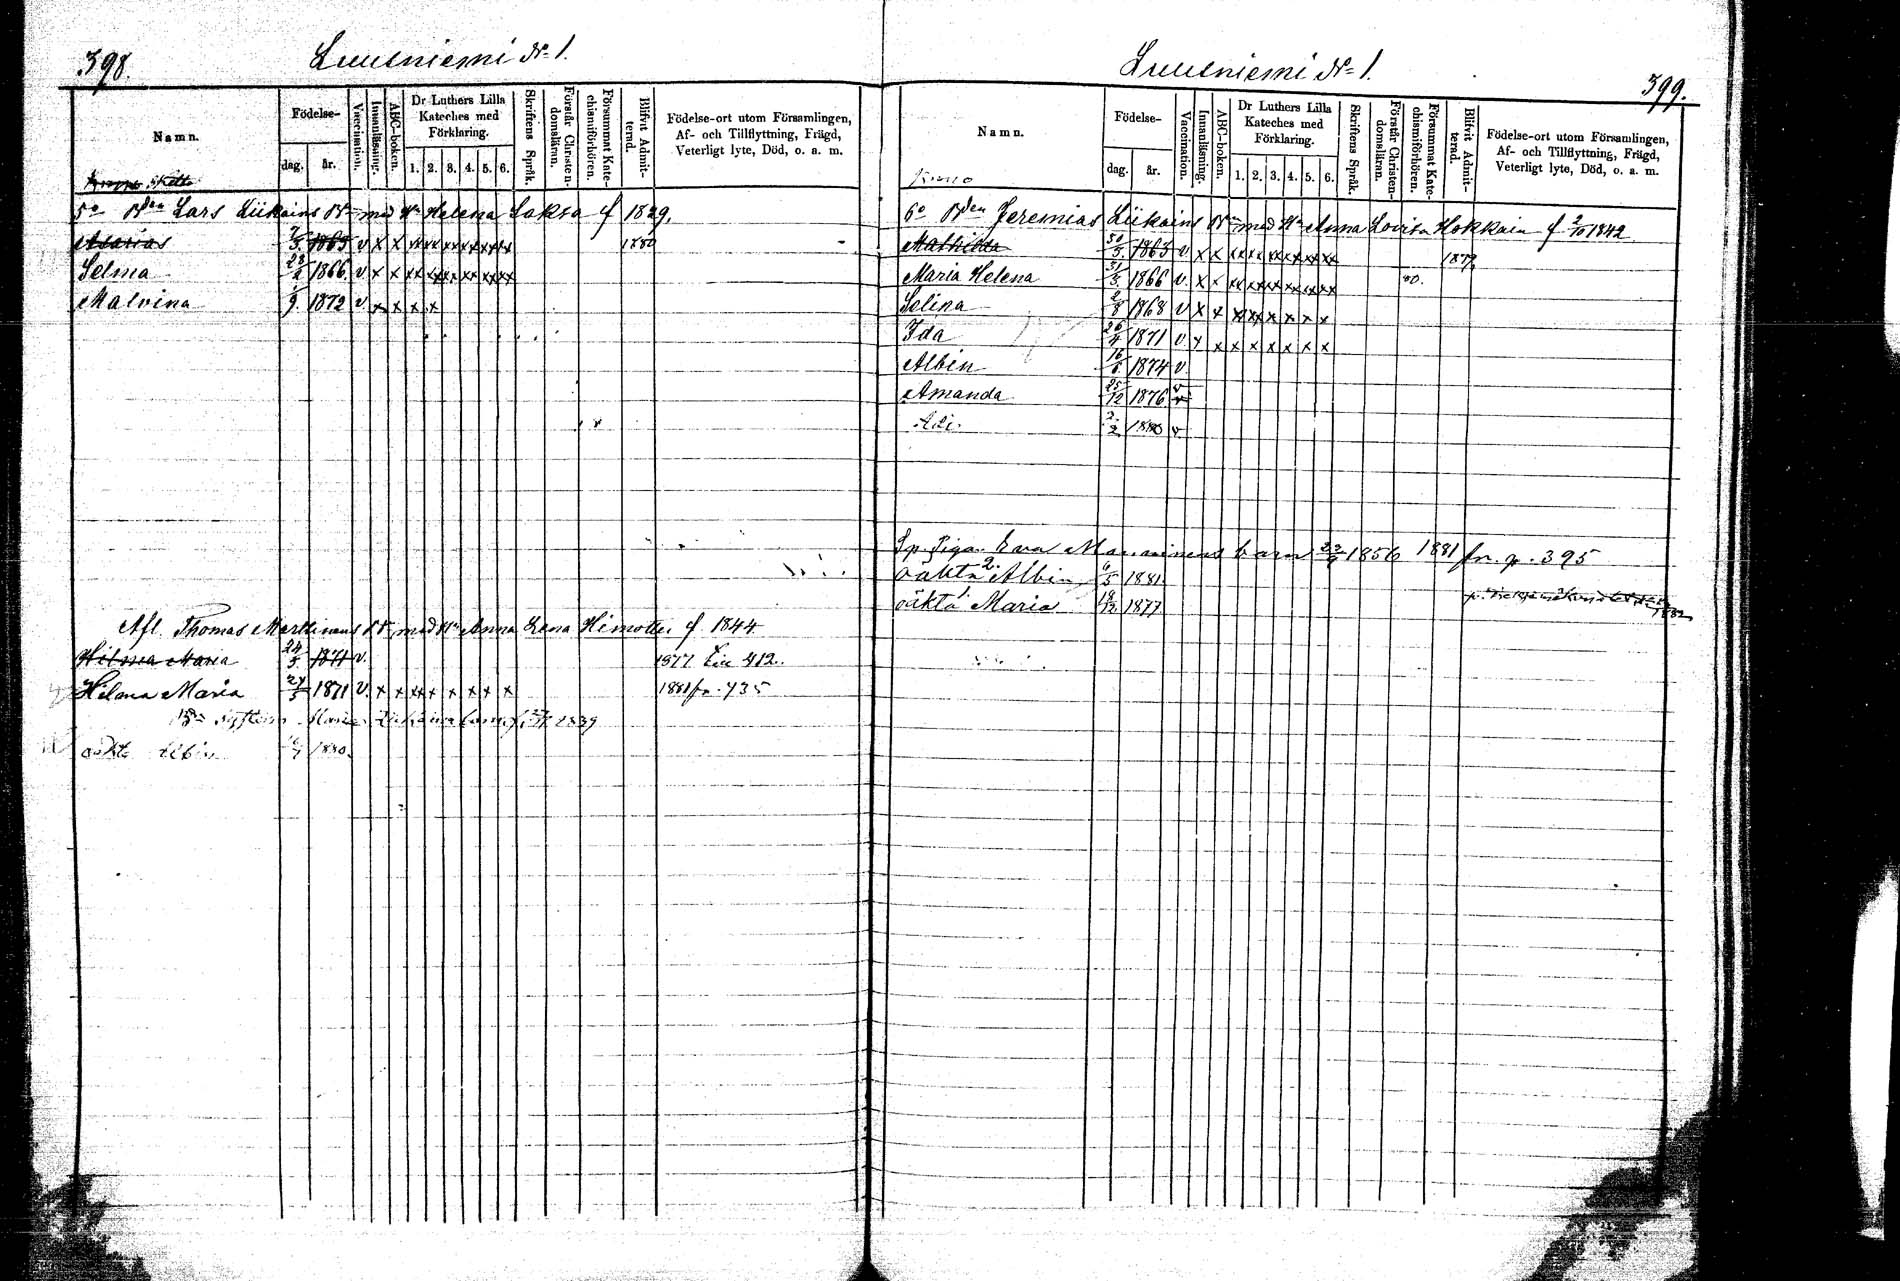 398.
Luusniemi No 1.
Namn.
Födelse-
dag.
år.
Vaccination.
Innanläsning.
ABC-boken.
Dr Luthers Lilla Kateches med Förklaring.
1. 2. 3. 4. 5. 6.
Skriftens Språk.
Förstår Christendomsläran.
Försummat Katechismiförhören.
Blifvit Admitterad.
Födelse-ort utom Församlingen, Af- och Tillflyttning, Frägd, Veterligt lyte, Död, o. a. m.
5o Bden Lars Liikains Br med Hu Helena Laksa f 1829.
Asarias 7/3 1863 v x x xx xx xx xx xx xx 1880
Selma 23/2 1866. v x x xx xx xx xx xx xx
Malvina 1/9. 1872 v x x x x
Afl. Thomas Marttinens Br med Hu Anna Lena Himottu f 1844.
Hilma Maria 24/5 1871 v. 1877 412.
Hilma Maria 24/5 1871 v. x x xx x x x x x 1881 fr. 735
Maria 1839
oäkta Albin 1880.
Luusniemi No 1.
399.
Namn.
Födelse-
dag.
år.
Vaccination.
Innanläsning.
ABC-boken.
Dr Luthers Lilla Kateches med Förklaring.
1. 2. 3. 4. 5. 6.
Skriftens Språk.
Förstår Christendomsläran.
Försummat Katechismiförhören.
Blifvit Admitterad.
Födelse-ort utom Församlingen, Af- och Tillflyttning, Frägd, Veterligt lyte, Död, o. a. m.
6o Bden Jeremias Liikains Br med Hu Anna Lovisa Hokkain f 2/10 1842
Mathilda 30/3. 1863 v. x x xx xx xx xx xx xx 1879.
Maria Helena 31/3. 1866 v. x x xx xx xx xx xx xx 80.
Selina 2/8 1868 v x x xx xx x x x x
Ida 26/4 1871 v. x x x x x x x x
Albin 16/6 1874 v
Amanda 25/12 1876 v
2/2 1880 v.
Sp. Piga Eva Manninens barn 22/9 1856 1881 fr. p. 395
oäkta 2. Albin 6/5 1881.
oäkta Maria 18/12 1877 1882